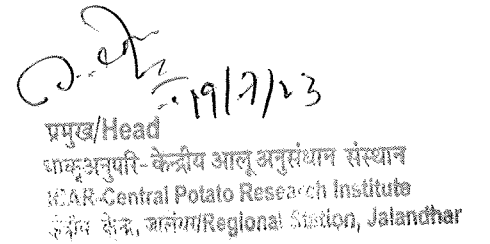 19/7/23
प्रमुख/Head
भाकृअनुपरि-केन्द्रीय आलू अनुसंधान संस्थान
ICAR-Central Potato Research Institute
क्षेत्रीय केन्द्र, जालंधर/Regional Station, Jalandhar